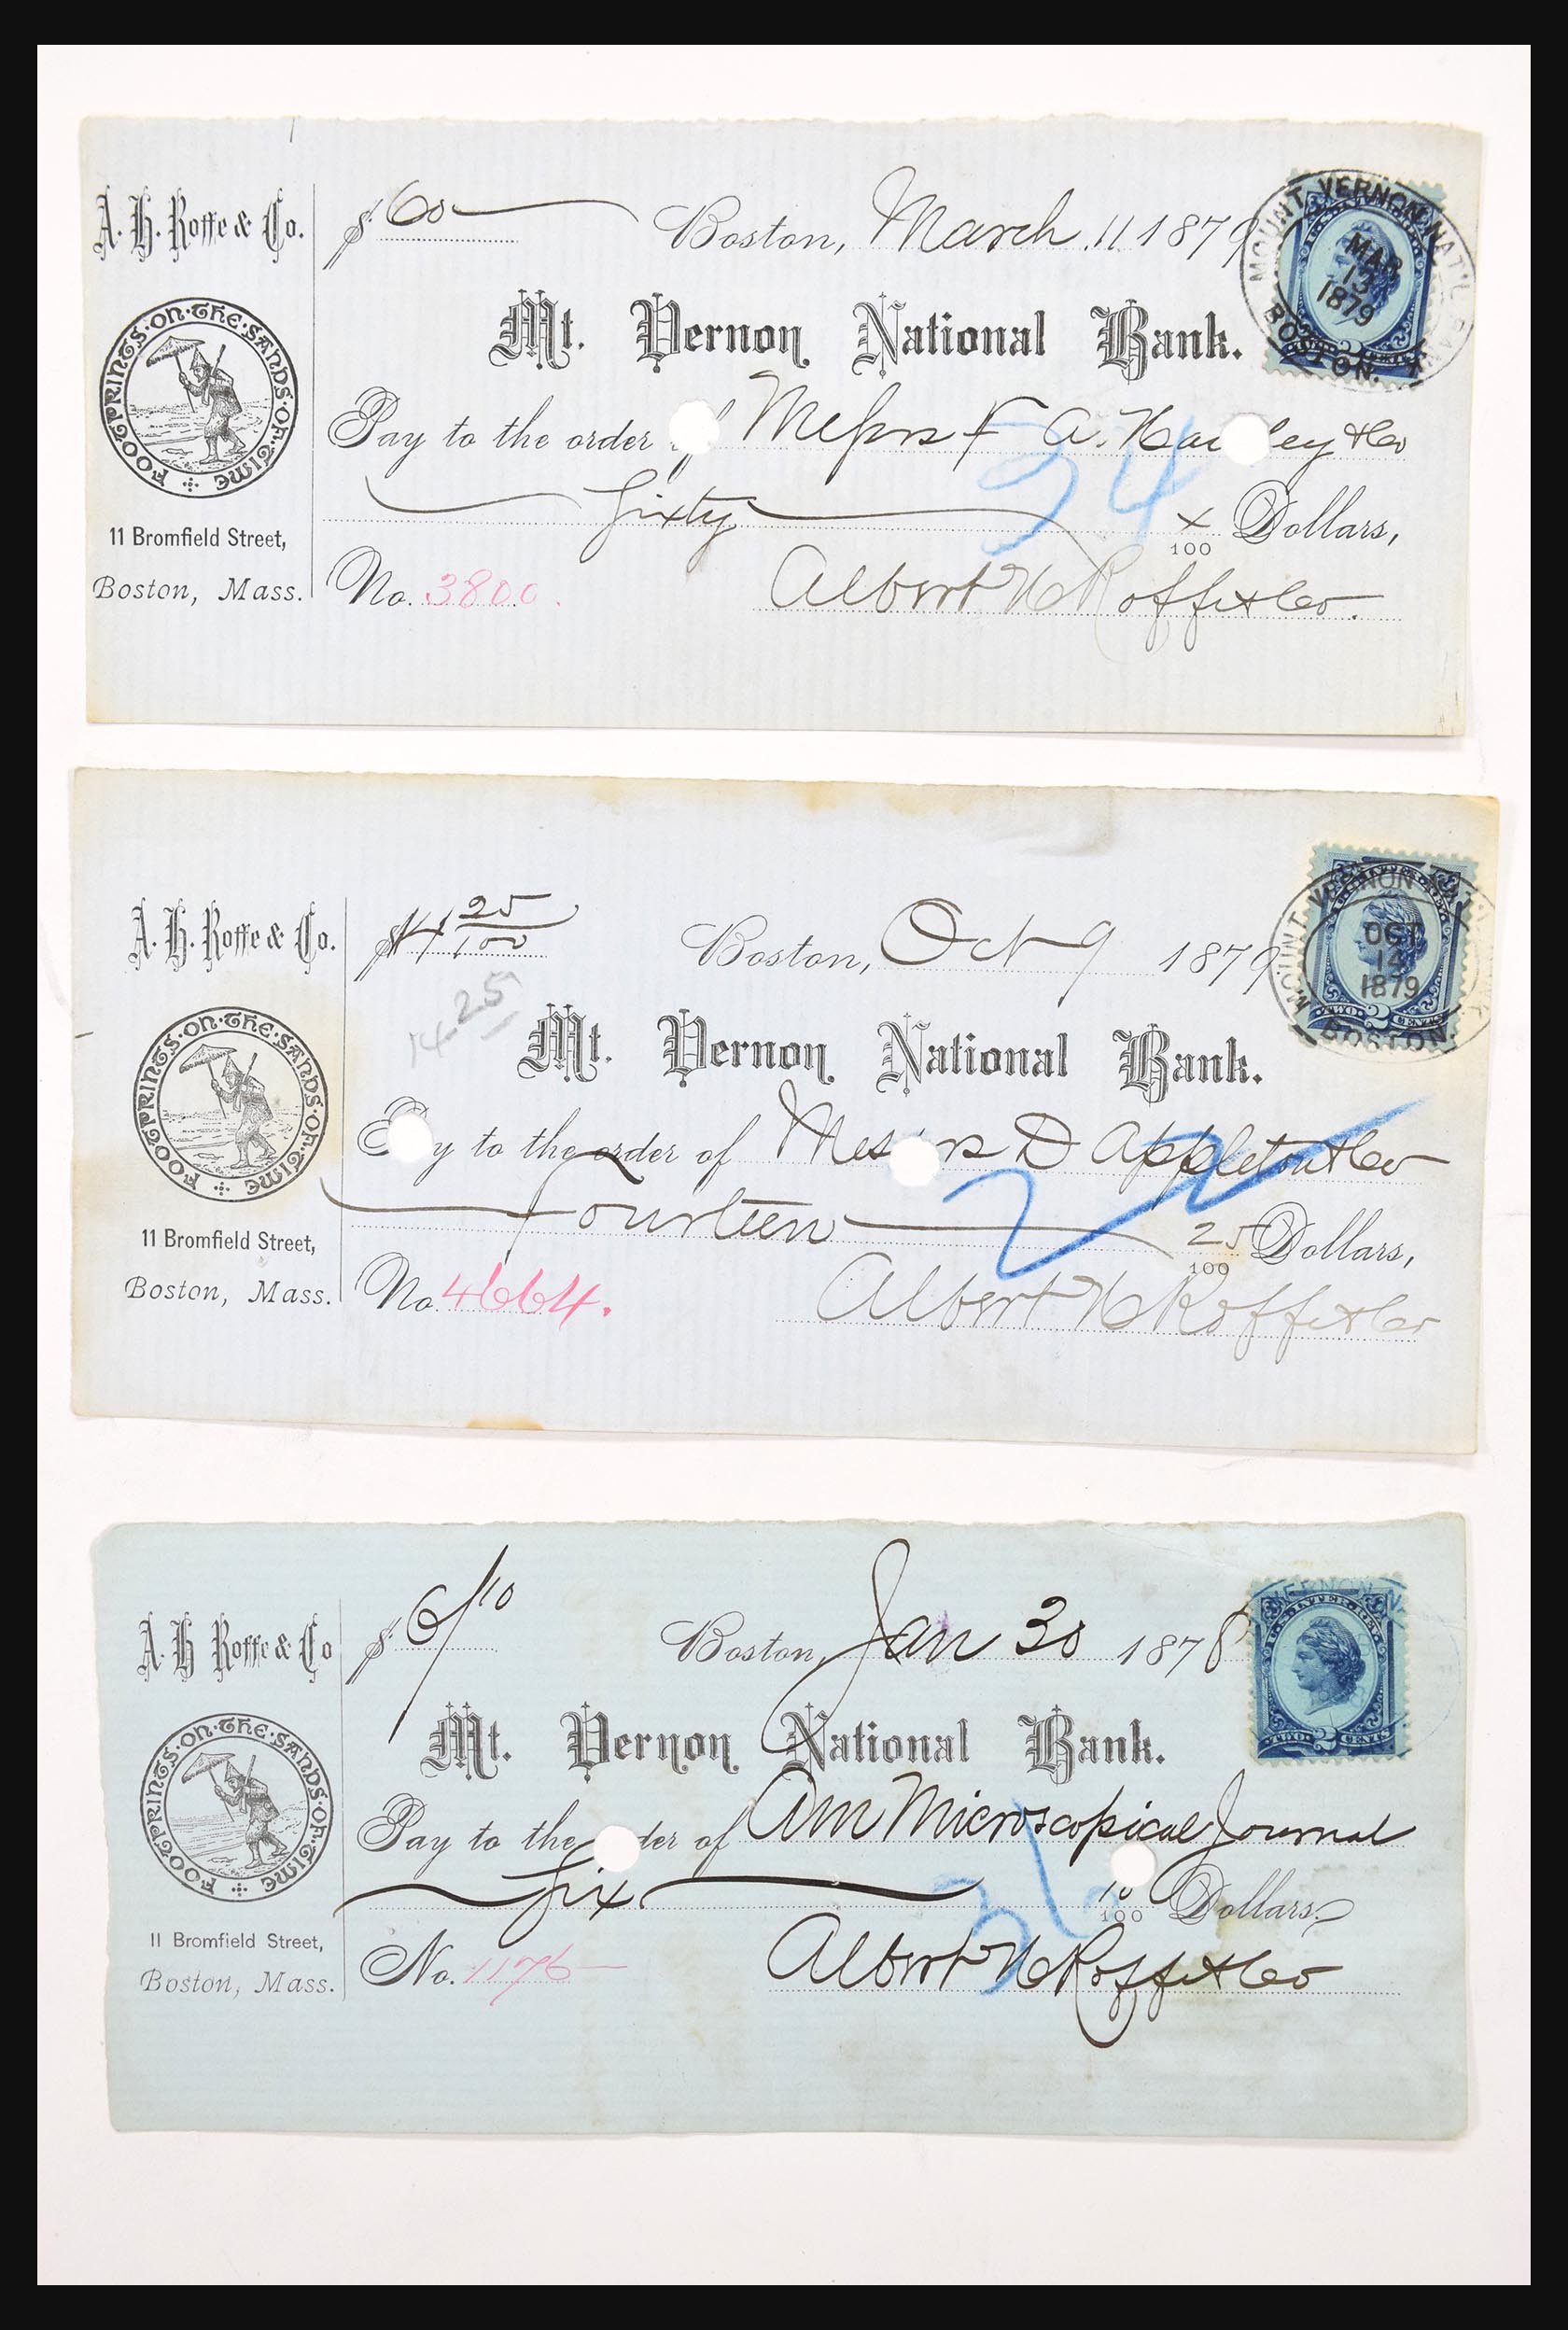 A. H. Roffe & Co.
FOOTPRINTS·ON·THE·SANDS·OF·TIME
11 Bromfield Street,
Boston, Mass.
$ 60
Boston, March 11 1879
MOUNT VERNON NAT'L BANK
MAR
13
1879
BOSTON.
Mt. Vernon National Bank.
Pay to the order Messrs F A. & Co
Sixty x/100 Dollars,
No. 3800.
Albert H Roffe & Co.
54
A. H. Roffe & Co.
FOOTPRINTS·ON·THE·SANDS·OF·TIME
11 Bromfield Street,
Boston, Mass.
$14 25/100
14.25
Boston, Oct 9 1879
MOUNT VERNON
OCT
14
1879
BOSTON
TWO 2 CENTS
Mt. Vernon National Bank.
to the order of Messrs D Appleton & Co
Fourteen 25/100 Dollars,
No. 4664.
Albert H Roffe & Co
A. H Roffe & Co
FOOTPRINTS·ON·THE·SANDS·OF·TIME
11 Bromfield Street,
Boston, Mass.
$ 6/10
Boston, Jan 30 1878
VERNON
U.S. INTER. REV.
TWO 2 CENTS
Mt. Vernon National Bank.
Pay to the order of Am Microscopical Journal
Six 10/100 Dollars,
No. 1176
Albert H Roffe & Co